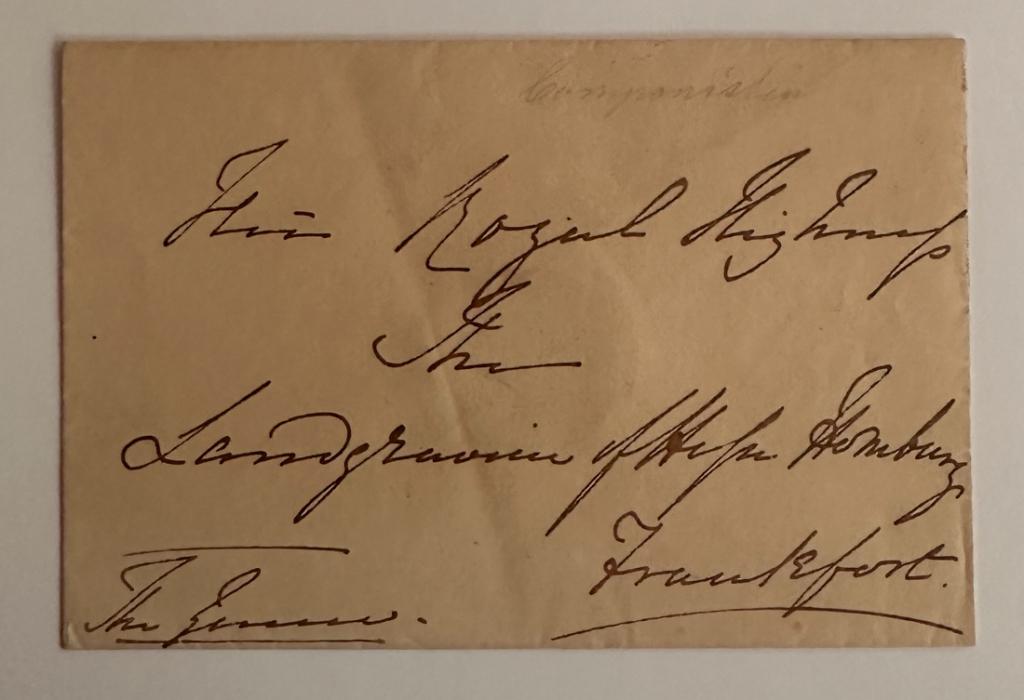 Componistin
Her Royal Highness
The
Landgravine of Hesse Homburg
Frankfort.
The